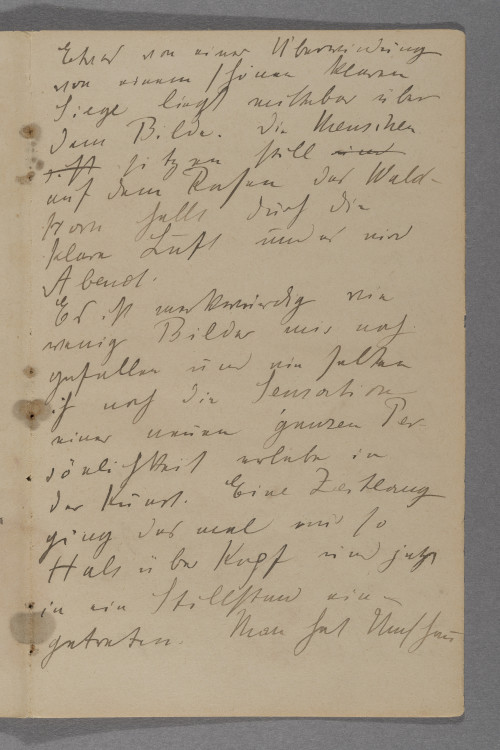 Etwas von einer Überwindung
von einem schönen klaren
Siege liegt sichtbar über
dem Bilde. Die Menschen
sitzen still und
auf dem Rasen das Wald-
horn hallt durch die
klare Luft und es wird
Abend.
Es ist merkwürdig wie
wenig Bilder mir noch
gefallen und wie selten
ich noch die Sensation
einer neuen ganzen Per-
sönlichkeit erlebe in
der Kunst. Eine Zeitlang
ging das mal mir so
Hals über Kopf und jetzt
in ein Stillstand ein-
getreten. Man hat Umschau